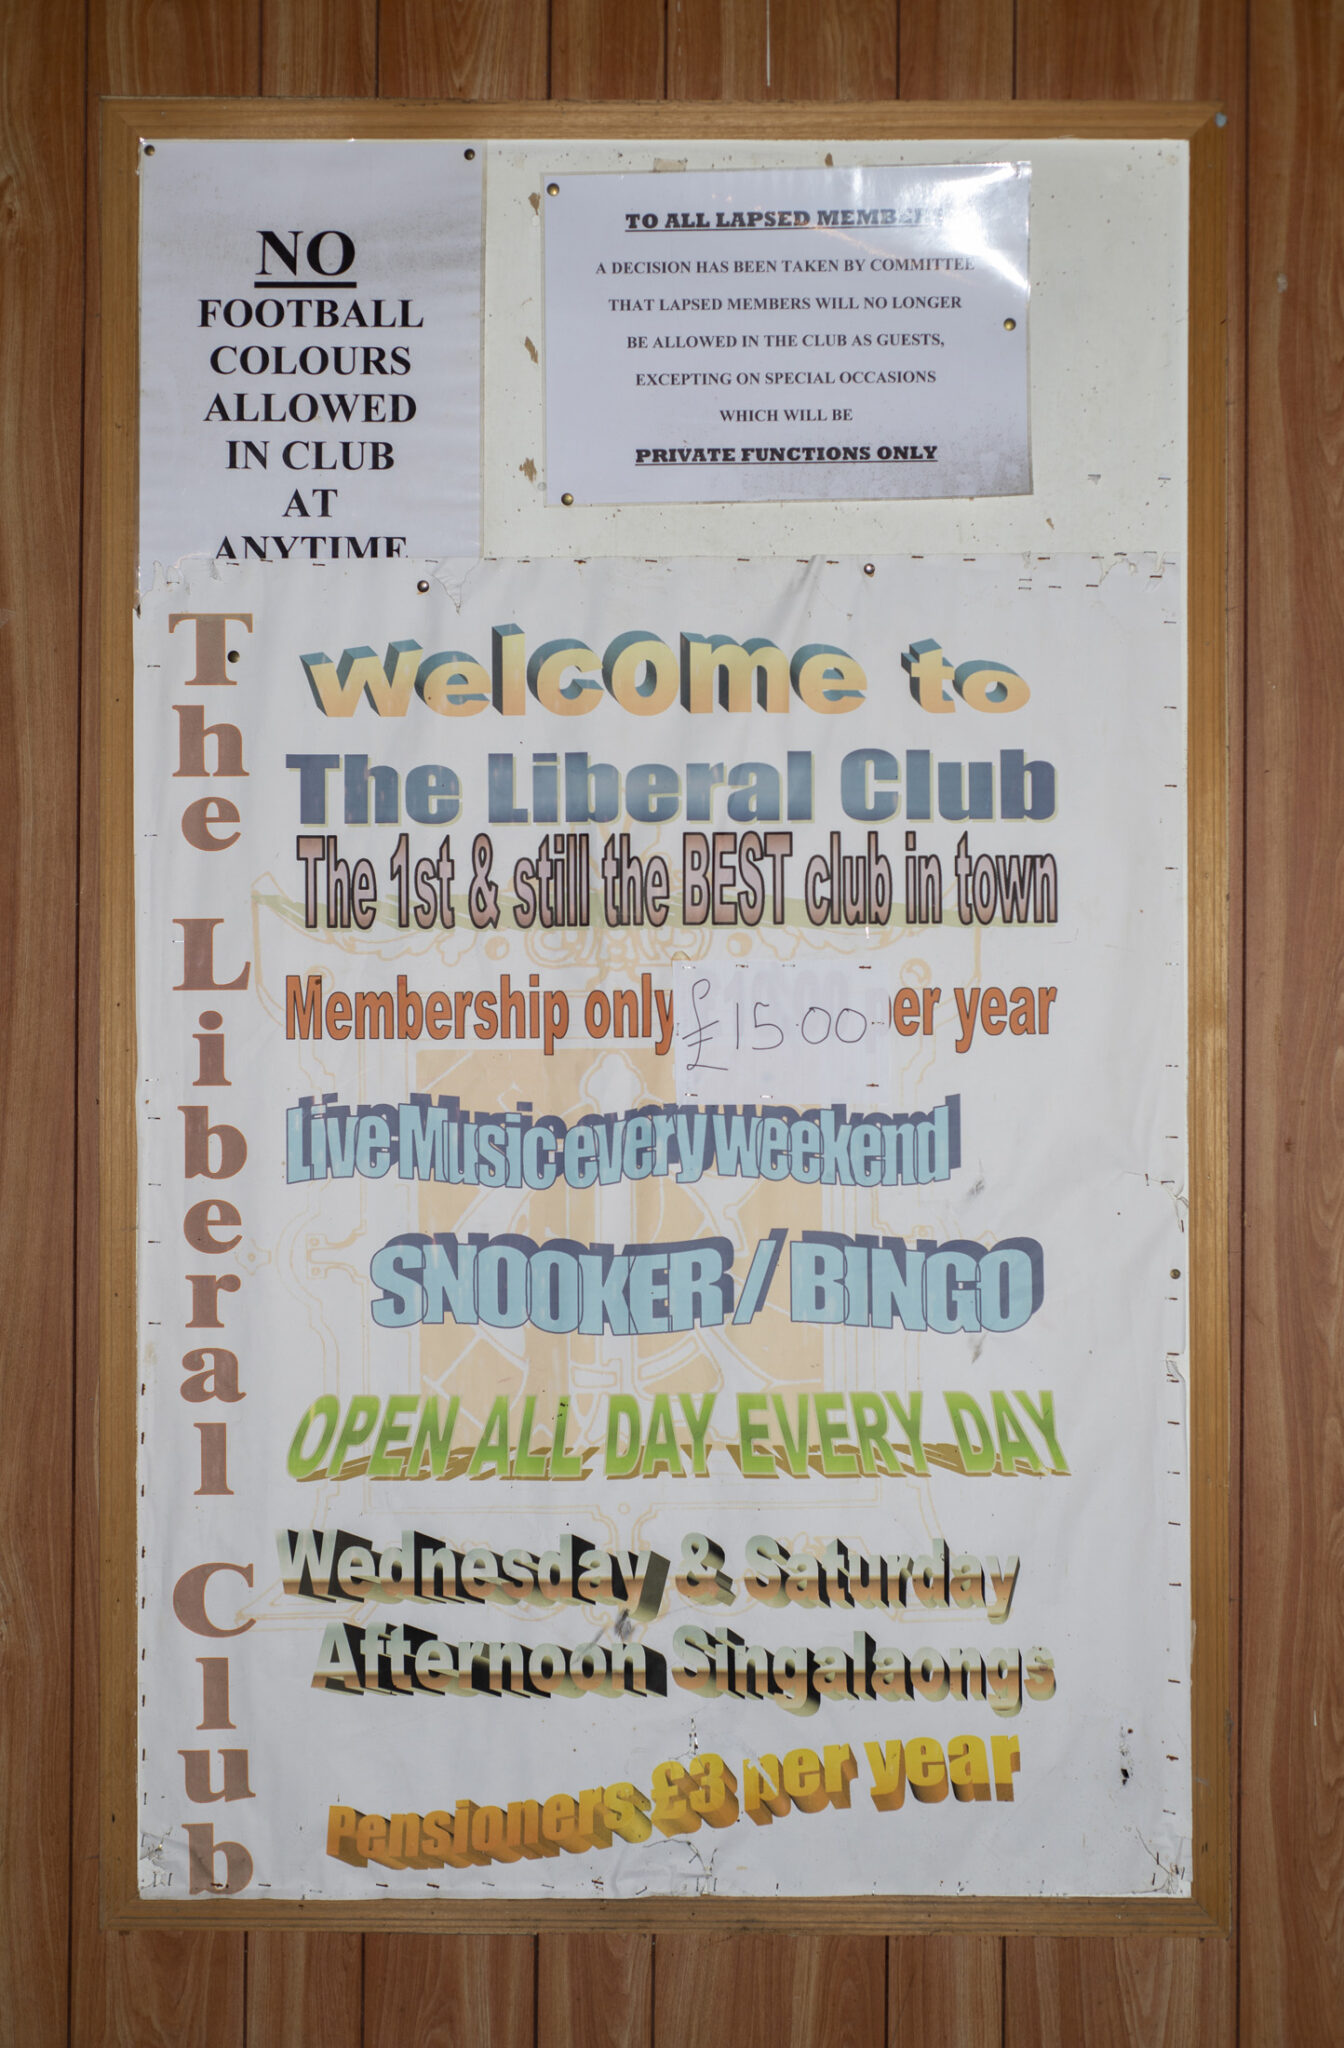 NO
FOOTBALL
COLOURS
ALLOWED
IN CLUB
AT
ANYTIME
TO ALL LAPSED MEMBERS
A DECISION HAS BEEN TAKEN BY COMMITTEE
THAT LAPSED MEMBERS WILL NO LONGER
BE ALLOWED IN THE CLUB AS GUESTS,
EXCEPTING ON SPECIAL OCCASIONS
WHICH WILL BE
PRIVATE FUNCTIONS ONLY
The Liberal Club
Welcome to
The Liberal Club
The 1st & still the BEST club in town
Membership only £15.00 er year
Live Music every weekend
SNOOKER / BINGO
OPEN ALL DAY EVERY DAY
Wednesday & Saturday
Afternoon Singalaongs
Pensioners £3 per year